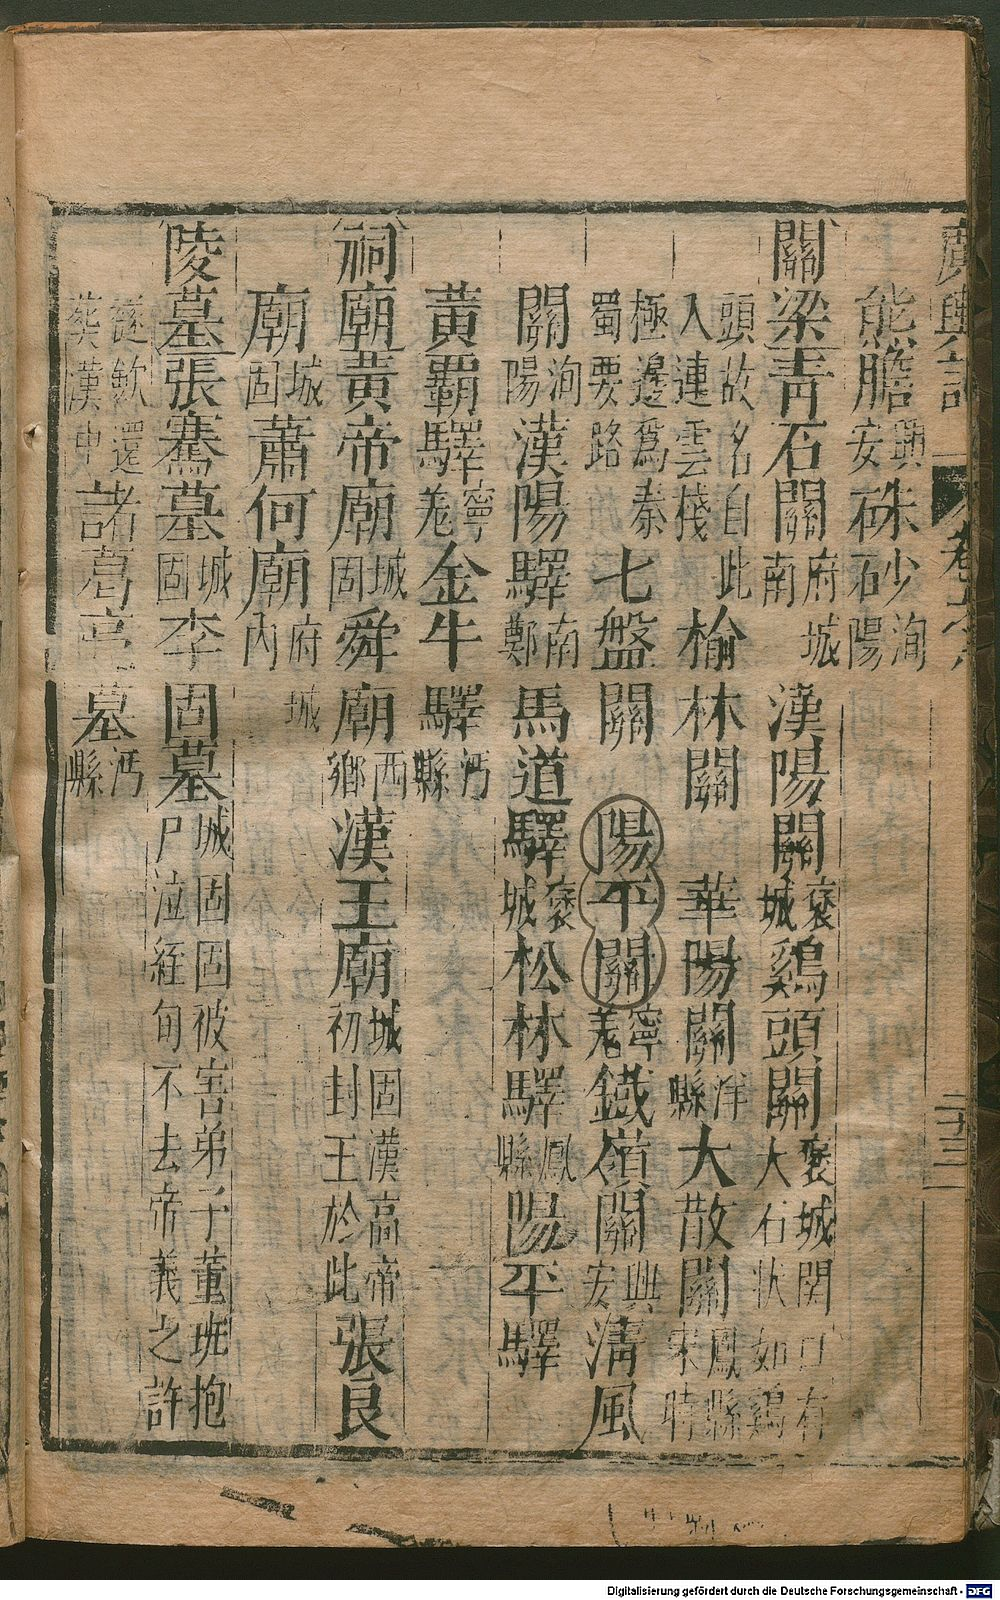 廣輿記 卷之八 二十三
熊膽興安 硃砂洵陽
關梁青石關府城南 漢陽關褒城 鷄頭關褒城関口有大石状如鷄
頭故名自此入連雲棧 榆林關 華陽關洋縣 大散關鳳縣宋時
極邊為秦蜀要路 七盤關 陽平關寧羗 鐵嶺關興安 清風
關洵陽 漢陽驛南鄭 馬道驛褒城 松林驛鳳縣 陽平驛
黃霸驛寧羗 金牛驛沔縣
祠廟黃帝廟城固 舜廟西鄉 漢王廟城固漢高帝初封王於此 張良
廟城固 蕭何廟府城內
陵墓張騫墓城固 李固墓城固固被害弟子董班抱尸泣經旬不去帝義之許
送歛還葬漢中 諸葛亮墓沔縣
Digitalisierung gefördert durch die Deutsche Forschungsgemeinschaft - DFG